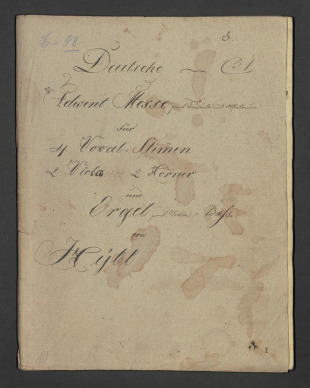 6-98
Deutsche
Advent Messe
für
4 Vocal-Stimen
2 Viola 2 Hörner
und
Orgel Bass.
von
Hybl
1